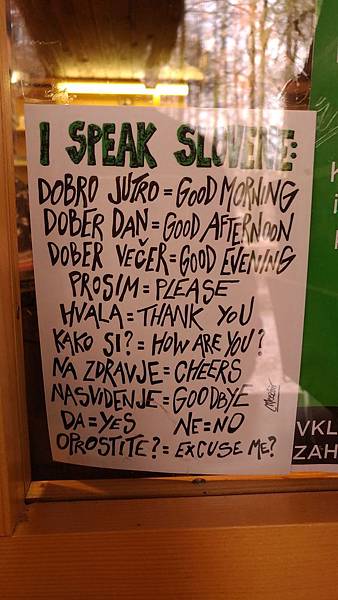 I SPEAK SLOVENE:
DOBRO JUTRO = GOOD MORNING
DOBER DAN = GOOD AFTERNOON
DOBER VEČER = GOOD EVENING
PROSIM = PLEASE
HVALA = THANK YOU
KAKO SI? = HOW ARE YOU?
NA ZDRAVJE = CHEERS
NASVIDENJE = GOODBYE
DA = YES NE = NO
OPROSTITE? = EXCUSE ME?
VKL
ZAH